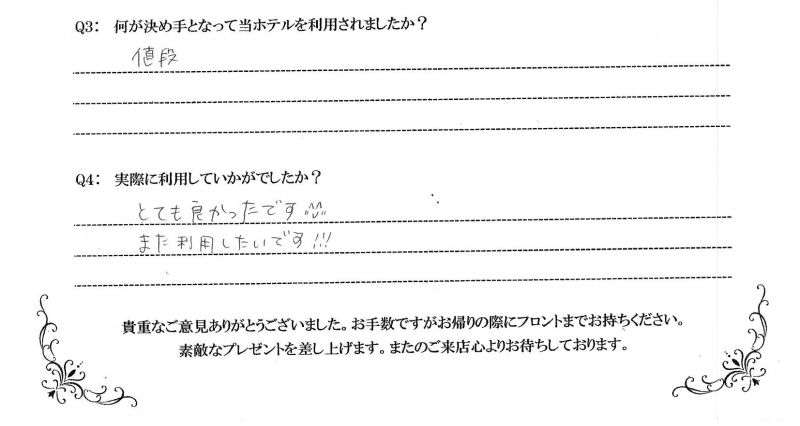 Q3： 何が決め手となって当ホテルを利用されましたか？
値段
Q4： 実際に利用していかがでしたか？
とても良かったです^^
また利用したいです!!!
貴重なご意見ありがとうございました。お手数ですがお帰りの際にフロントまでお持ちください。
素敵なプレゼントを差し上げます。またのご来店心よりお待ちしております。